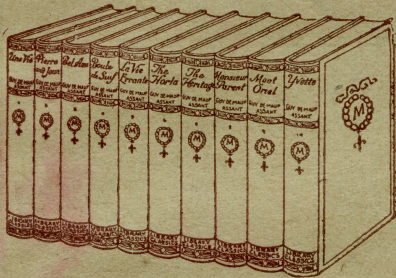 Une Vie
GUY DE MAUP
ASSANT
Pierre
and Jean
GUY DE MAUP
ASSANT
Bel Ami
GUY DE MAUP
ASSANT
Boule
de Suif
GUY DE MAUP
ASSANT
La Vie
Errante
GUY DE MAUP
ASSANT
The
Horla
GUY DE MAUP
ASSANT
The
Heritage
GUY DE MAUP
ASSANT
Monsieur
Parent
GUY DE MAUP
ASSANT
Mont
Oriol
GUY DE MAUP
ASSANT
Yvette
GUY DE MAUP
ASSANT
M